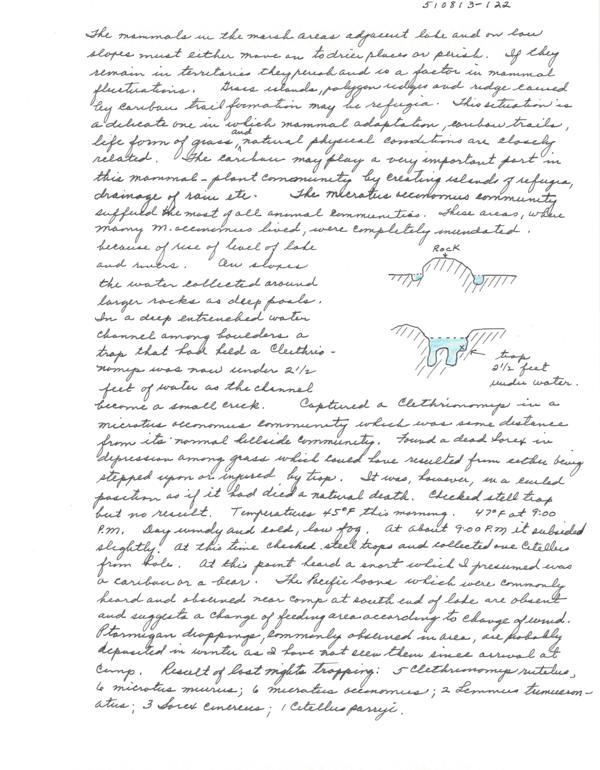 510813-122
The mammals in the marsh areas adjacent lake and on low
slopes must either move on to drier places or perish. If they
remain in territories they perish and is a factor in mammal
fluctuations. Grass islands, polygon ridges and ridge caused
by caribou trail formation may be refugia. This situation is
a delicate one in which mammal adaptation, caribou trails,
life form of grass, and natural physical conditions are closely
related. The caribou may play a very important part in
this mammal-plant community by creating islands of refugia,
drainage of rain etc. The microtus oeconomus community
suffered the most of all animal communities. These areas, where
many M. oeconomus lived, were completely inundated.
because of rise of level of lake
and rivers. On slopes
the water collected around
larger rocks as deep pools.
In a deep entrenched water
channel among boulders a
trap that had held a Clethrio-
nomys was now under 2 1/2
feet of water as the channel
Rock
trap
2 1/2 feet
under water.
become a small creek. Captured a Clethrionomys in a
microtus oeconomus community which was some distance
from its normal hillside community. Found a dead Sorex in
depression among grass which could have resulted from either being
stepped upon or injured by trap. It was, however, in a curled
position as if it had died a natural death. Checked steel trap
but no result. Temperatures 45°F this morning. 47°F at 9:00
P.M. Day windy and cold, low fog. At about 9:00 P.M it subsided
slightly. At this time checked steel traps and collected one Citellus
from hole. At this point heard a snort which I presumed was
a caribou or a bear. The Pacific loons which were commonly
heard and observed near camp at south end of lake are absent
and suggests a change of feeding area according to change of wind.
Ptarmigan droppings, commonly observed in area, are probably
deposited in winter as I have not seen them since arrival at
camp. Result of last nights trapping: 5 Clethrionomys rutilus,
6 microtus miurus; 6 microtus oeconomus; 2 Lemmus trimucron-
atus; 3 Sorex cinereus; 1 Citellus parryi.